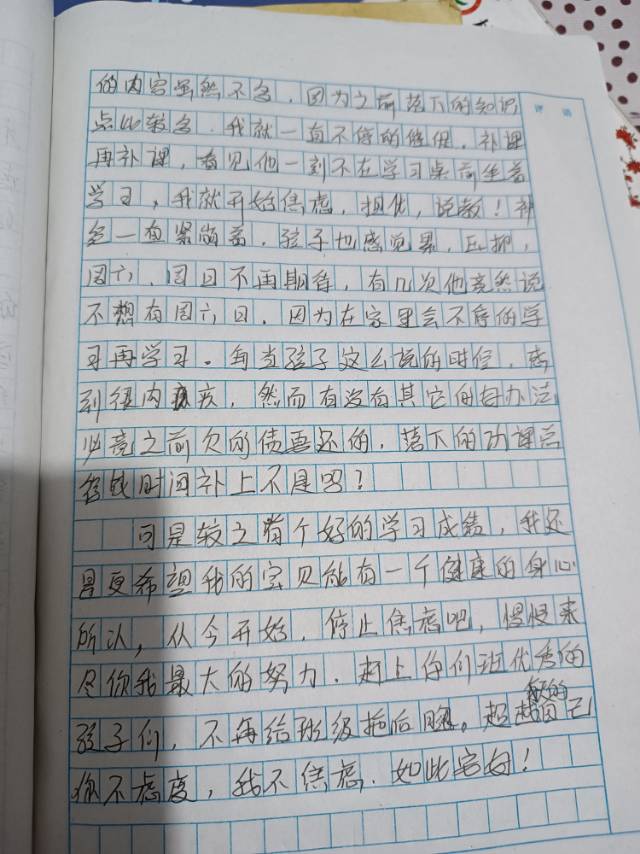 评 语
的内容虽然不多，因为之前落下的知识
点比较多，我就一直不停的催促，补课
再补课，看见他一刻不在学习桌前坐着
学习，我就开始焦虑，担忧，说教！神
经一直紧绷着，孩子也感觉累，压抑，
周六、周日不再期待，有几次他竟然说
不想有周六日，因为在家里会不停的学
习再学习。每当孩子这么说的时候，感
到很内疚，然而有没有其它的好办法
必竟之前欠的债要还的，落下的功课总
得找时间补上不是吗？
可是较之有个好的学习成绩，我还
是更希望我的宝贝能有一个健康的身心
所以，从今开始，停止焦虑吧，慢慢来
尽你我最大的努力，赶上你们班优秀的
孩子们，不再给班级拖后腿。超越自己
你不虑度，我不焦虑，如此安好！